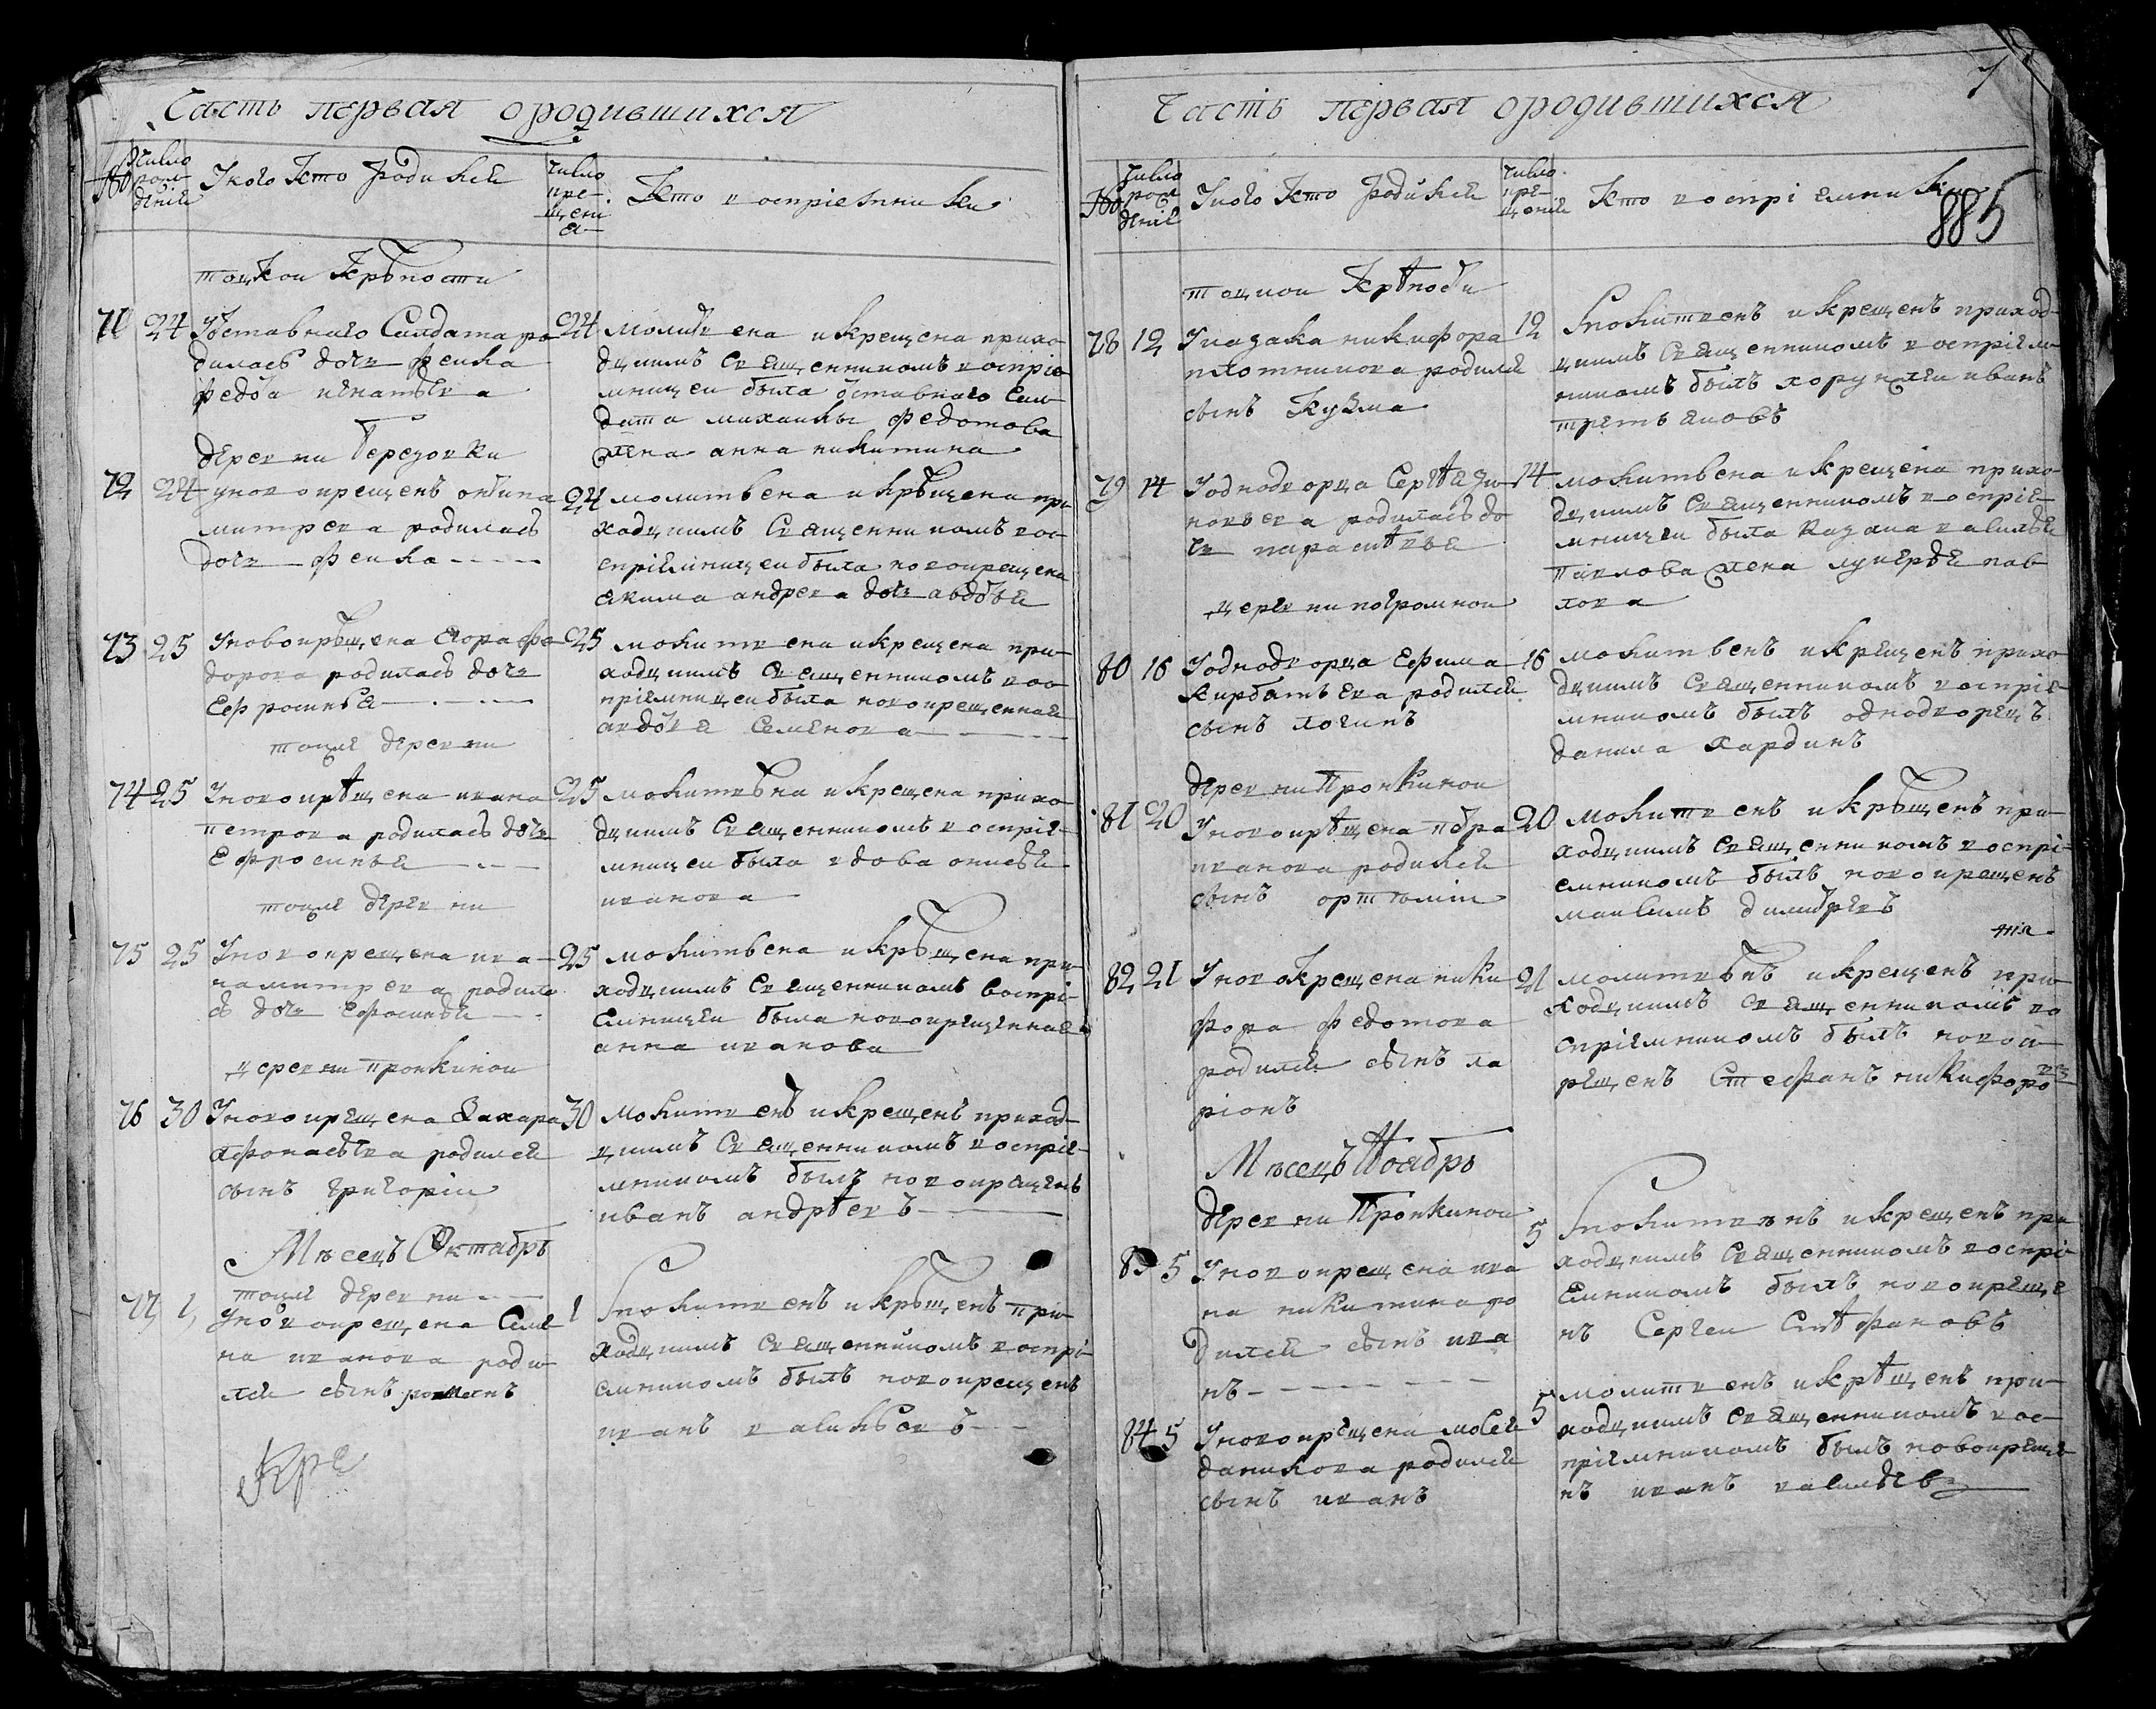 Часть первая ородившихся
№
число рождения
Укого кто родился
число крещения
Кто восприемники
тоцкои крѣпости
71 24 Уоставного Салдата ро
дилась дочь фекла
федота игнатьева
24 молитвена икрещена прихо
дцкимъ Священникомъ воспрiе
мницеи была оставного Сал
дата михаилы федотова
жена анна никитина
деревни березовки
72 24 уновокрещенъ онтипа
митрева родилась
дочь фекла
24 молитвена икрѣщена при
ходцкимъ Священникомъ вос
прiемницеи была новокрещена
якима андрева дочь авдотья
73 25 Уновокрѣщена Егора фе
дорова родилась дочь
Ефросинья
25 молитвена икрещена при
ходцкимъ Священникомъ вос
прiемницеи была новокрещенная
авдотья Семенова
тоцже деревни
74 25 Уновокрѣщена ивана
петрова родилась дочь
Ефросинья
25 молитвѣна икрещена прихо
дцкимъ Священникомъ воспрiе
мницеи была вдова онисья
иванова
тоцже деревни
75 25 Уновокрещена ива
на митрева родила
сь дочь Ефросинья
25 молитвена икрѣщена при
ходцкимъ Священникомъ воспрi
емницеи была новокрещенная
анна иванова
деревни пронкинои
76 30 Уновокрещена Захара
афонасьева родился
сынъ григорiи
30 молитвенъ икрещенъ приход
цкимъ Священникомъ воспрiе
мникомъ былъ новокрещенъ
иванъ андрѣевъ
Мѣсецъ Октябрь
тоцже деревни
77 1 Уновокрещена Семе
на иванова роди
лся сынъ романъ
1 молитвенъ икрѣщенъ при
ходцкимъ Священникомъ воспрi
емникомъ былъ новокрещенъ
иванъ аликсѣевъ
Кре
7
Часть первая ородившихся
№
число рождения
Укого кто родился
число крещения
Кто воспрiемники
885
тоцкои крѣпости
78 12 Указака никифора
плотникова родился
сынъ Кузма
12 молитвенъ икрещенъ приход
цкимъ Священникомъ воспрiем
никомъ былъ хорунжеи иванъ
третьяковъ
79 14 Уоднодворца Сергѣя зи
новьева родилась до
чь парасковья
14 молитвена икрещена прихо
дцкимъ Священникомъ воспрiе
мницеи была казака василья
павлова жена лукерья пав
лова
деревни погромнои
80 16 Уоднодворца Ефима
курбатьева родился
сынъ логинъ
16 молитвенъ икрещенъ прихо
дцкимъ Священникомъ воспрiе
мникомъ былъ однодворецъ
данила хардинъ
деревни Пронкинои
81 20 Уновокрѣщена петра
иванова родился
сынъ ортемiи
20 молитвенъ икрѣщенъ при
ходцкимъ Священникомъ воспрi
емникомъ былъ новокрещенъ
максимъ димитревъ
82 21 Уновокрещена ники
фора федотова
родился сынъ ла
рiонъ
21 молитвѣнъ икрещенъ при
ходцкимъ Священникомъ во
спрiемникомъ былъ новок
рещенъ Стефанъ никифоровъ
Мѣсецъ Ноябрь
деревни Пронкинои
83 5 Уновокрещена ива
на никитина ро
дился сынъ ива
нъ
5 молитвенъ икрещенъ при
ходцкимъ Священникомъ воспрi
емникомъ былъ новокреще
нъ Сергеи Стѣфановъ
84 5 Уновокрещена мосея
данилова родился
сынъ иванъ
5 молитвенъ икрѣщенъ при
ходцкимъ Священникомъ вос
прiемникомъ былъ новокреще
нъ иванъ васильевъ